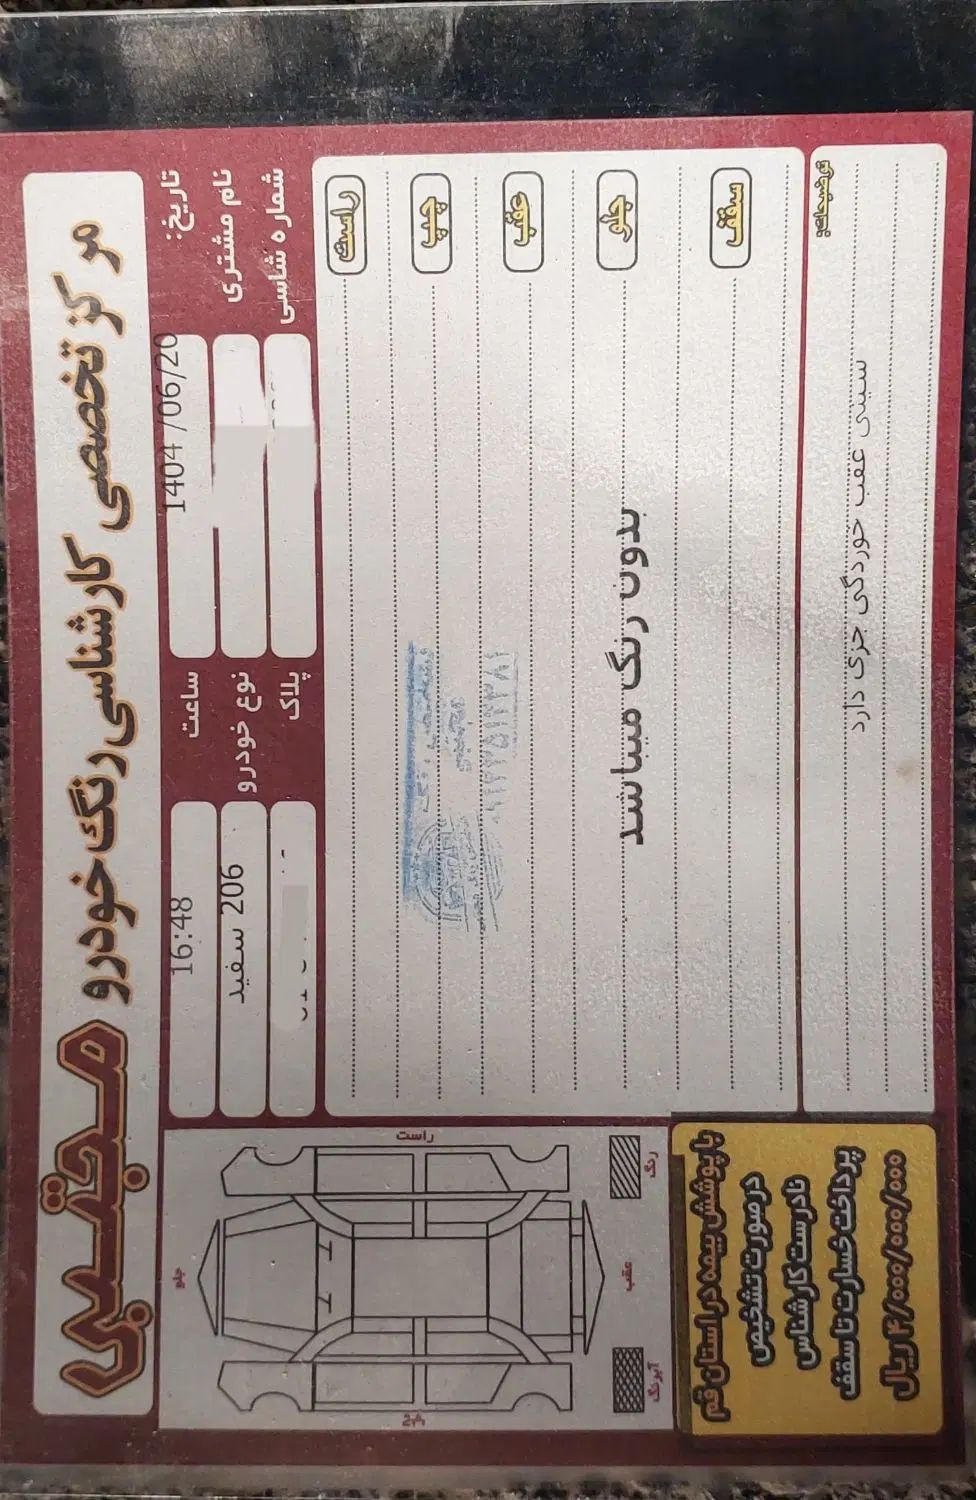 مرکز تخصصی کارشناسی رنگ خودرو مجتبی
تاریخ: 1404/06/20
ساعت 16:48
نام مشتری
نوع خودرو 206 سفید
شماره شاسی
پلاک
راست
چپ
عقب
جلو
بدون رنگ میباشد
سقف
توضیحات:
سینی عقب خوردگی جزی دارد
راست
جلو
عقب
چپ
رنگ
آبرنگ
با پوشش بیمه در استان قم
در صورت تشخیص
نادرست کارشناس
پرداخت خسارت تا سقف
ریال